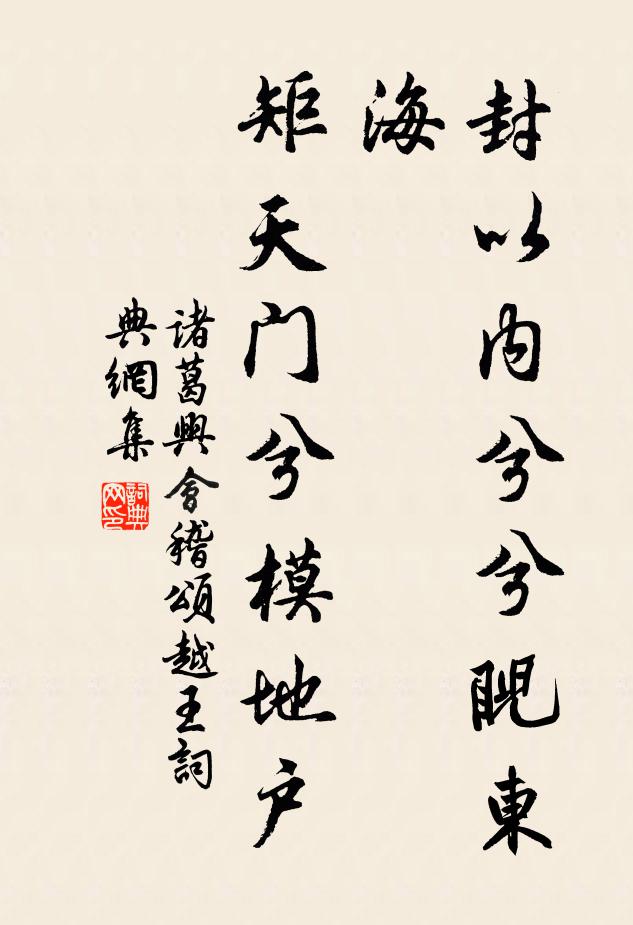 封以内兮兮睨東
海
矩天门兮模地户
诸葛興會稽頌越王詞
典網集
詞典
网印